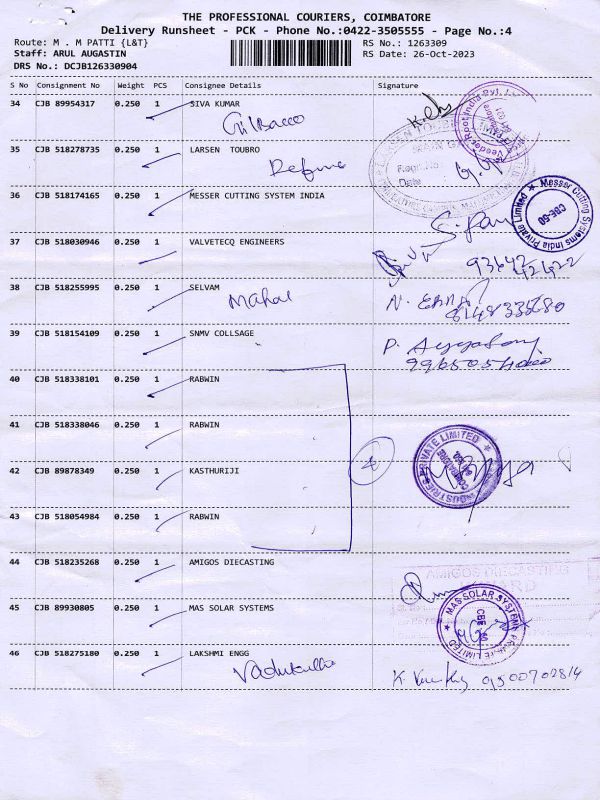 THE PROFESSIONAL COURIERS, COIMBATORE
Delivery Runsheet - PCK - Phone No.:0422-3505555 - Page No.:4
Route: M . M PATTI {L&T}
RS No.: 1263309
Staff: ARUL AUGASTIN
RS Date: 26-Oct-2023
DRS No.: DCJB126330904
S No Consignment No Weight PCS Consignee Details Signature
34 CJB 89954317 0.250 1 SIVA KUMAR
35 CJB 518278735 0.250 1 LARSEN TOUBRO
Defence
36 CJB 518174165 0.250 1 MESSER CUTTING SYSTEM INDIA
Messer Cutting Systems India Private Limited
CBE-50
37 CJB 518030946 0.250 1 VALVETECQ ENGINEERS
38 CJB 518255995 0.250 1 SELVAM
Mahal
39 CJB 518154109 0.250 1 SNMV COLLSAGE
40 CJB 518338101 0.250 1 RABWIN
41 CJB 518338046 0.250 1 RABWIN
4
42 CJB 89878349 0.250 1 KASTHURIJI
43 CJB 518054984 0.250 1 RABWIN
INDUSTRIES PRIVATE LIMITED
44 CJB 518235268 0.250 1 AMIGOS DIECASTING
AMIGOS DIECASTING
45 CJB 89930805 0.250 1 MAS SOLAR SYSTEMS
MAS SOLAR SYSTEMS PRIVATE LIMITED
46 CJB 518275180 0.250 1 LAKSHMI ENGG
9500702814